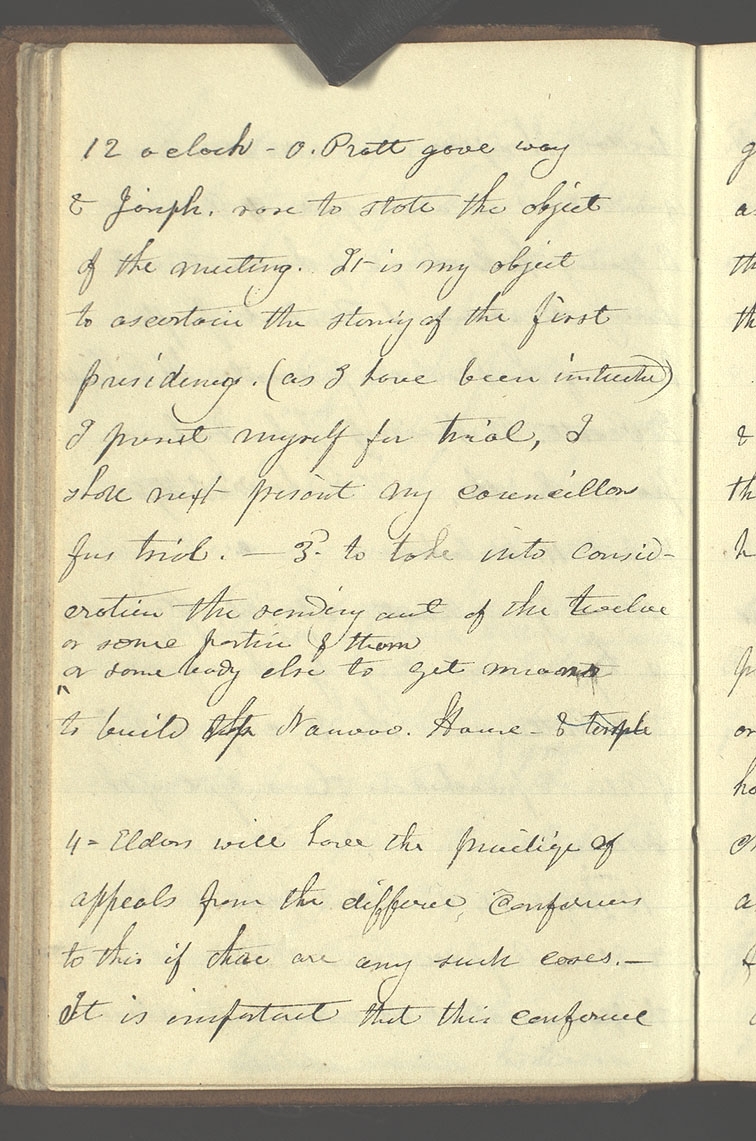 12 oclock - O. Pratt gave way
& Joseph. rose to state the object
of the meeting. It is my object
to ascertain the standing of the first
presidency. (as I have been instructed)
I present myself for trial, I
shall next present my councillors
for trial. — 3d to take into consid-
eration the sending out of the twelve
or some portion of them
or some body else to get means
to build Nauvoo. House - & temple
4 = Elders will have the privilige of
appeals from the different Conferences
to this if there are any such cases. —
It is important that this conference
g
a
th
th
&
th
h
p
or
ho
a